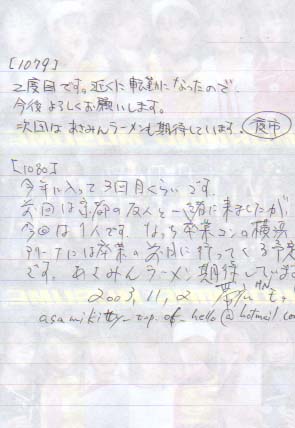 [1079]
2度目です。近くに転勤になったので、
今後よろしくお願いします。
次回はあさみんラーメンも期待しています。夜市
[1080]
今年に入って3回目くらいです。
前回は京都の友人と一緒に来ましたが、
今回は1人です。なっち卒業コンの横浜
アリーナには卒業の お月に行ってくる予定
です。あさみんラーメン期待していま
2003,11,2
HN
asamikitty_top_of_hello@hotmail.com